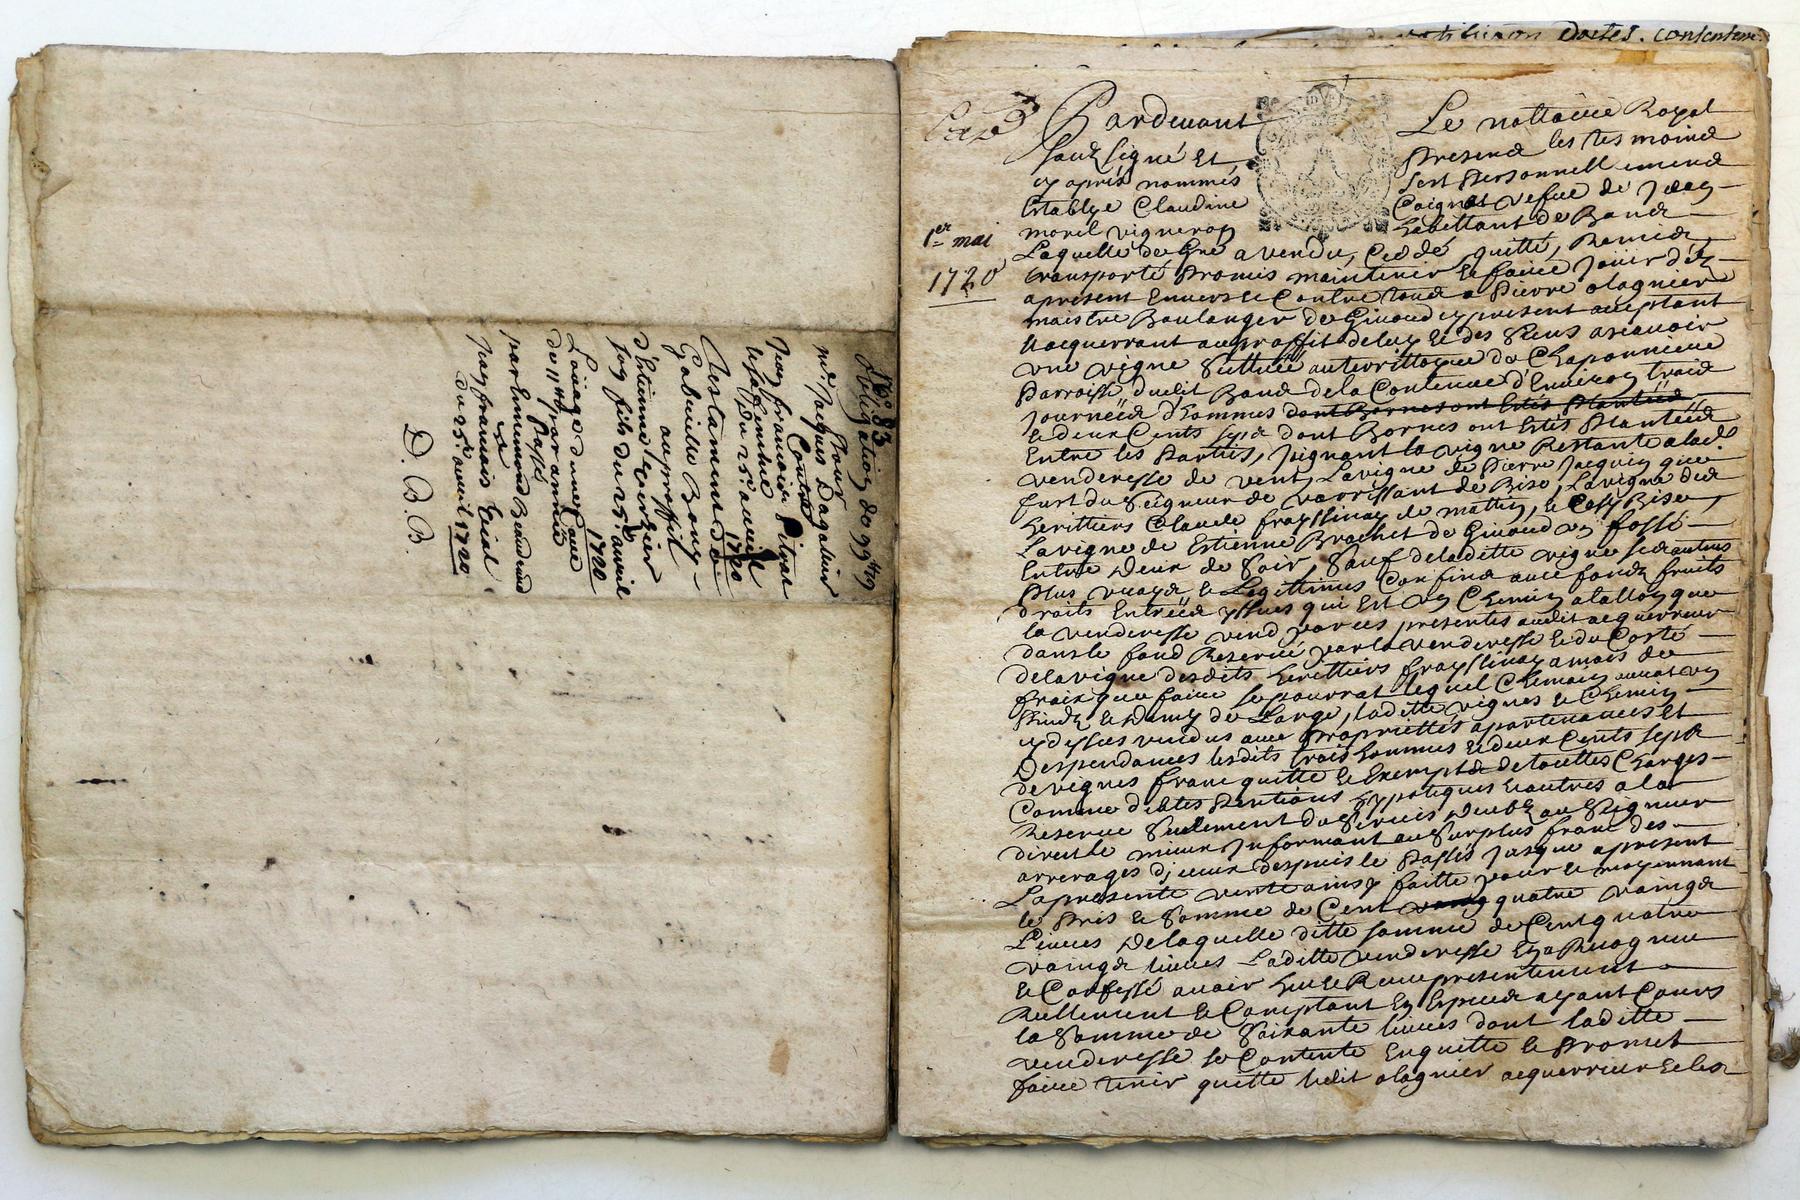 N° 83
obligation de 99# 19
Pour
me Jaques Dagalier
Contre
Jean francois Pitrat
et sa femme
Du 25e. avril 1720
Testament de
Gabrielle Bouy-
au proffit
d'Etienne
Jay fils du 25e. avril
1720
Loüage d'une Cave
de 11# par année
Passé
par Ennemond
a
Jean francois Trial
du 25e. avril 1720
D. B. B.
Doctes. contenten
Exp
1er mai
1720
Pardevant Le nottaire Royal
souz signé Et Presend les tesmoind
cy apréz nommés sest Personnellement
Establye Claudine Coignet vefue de Jean
morel vigneron habittant de Band
Laquelle de Gré a vendu, Ceddé, quitté, Remid
transporté Promis maintenir Et faire Joüir déz
apresent Envers et Contre toud a Pierre olagnier
maistre Boulanger de Givord cy present aceptant
Et acquerrant au proffit de luy Et des Siens asçavoir
vne vigne Scittuée au territtoyre de Chaponnieue
Parroisse dudit Band de la Contenue d'Environ trois
Journééd d'hommes dont Bornes ont Estés Plantééd
Et deux Cents sept dont Bornes ont Estés Plantééd
Entre les Parties, Joignant la vigne Restante a lad.
venderesse de vent, Lavigne de Pierre Jacquin que
fust du Seigneur de varrissant de Bise, Lavigne des
heritiers Claude frayssinay de mattin, Et Cest Bise,
Lavigne de Estienne Brachet de Givord vn fossé
Entre deux de Soir, Sauf de laditte vigne sed autres
Plus vrayd Et Legittimes Confind avec fondz fruits
droits Entrééd yssues qui Est vn Chemin a tallon que
la venderesse vend par ces presentes audit acquerreur
dans le fond Reservé par la venderesse Et du Costé
de la vigne desdits heritiers frayssinay a mois de
fraix que faire se pourrat lequel Chemain aurat vn
Piedz Et Demy de Large, laditte vignes Et Chemin
cy dessus vendus avec Proprietés apartenances Et
Despendances lesdits trois hommes Et deux Cents sept
de vignes franc quitte Et Exempte de touttes Charges
Comme debtes Pentions hypotiques Et autres a la
Reserve Seulement du Servis Deubz au Seigneur
direct le mieux Informant au Surplus franc des
arrerages d'iceux despuis le Passés Jusque apresent
Lapresente vente ainsy faitte pour Et moyennant
le Pris Et Somme de Cent vaing quatre vaingd
Livres De laquelle ditte somme de Cent quatre
vaingd livres Laditte venderesse En a Recogneu
Et Confessé avoir heu Et Receu presentement
Reellement Et Comptant En Especed ayant Cours
la Somme de Soixante livres dont laditte
venderesse se Contente Enquitte Et Promet
faire tenir quitte ledit olagnier acquerreur Et les